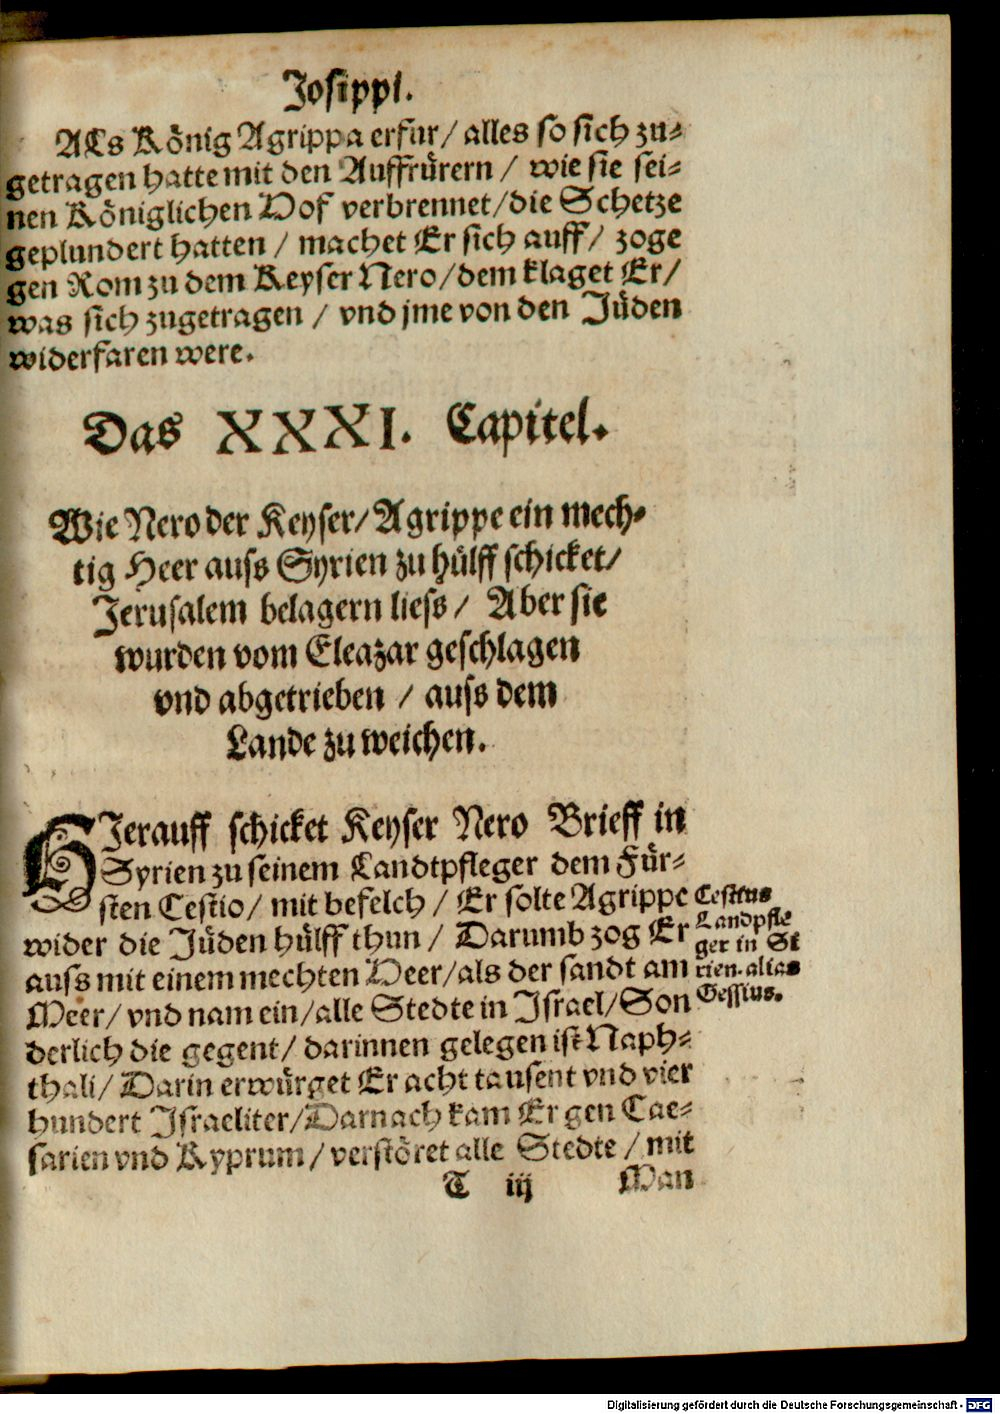 Josippi.
ALs König Agrippa erfur/ alles so sich zu-
getragen hatte mit den Auffrürern / wie sie sei-
nen Königlichen Hof verbrennet/die Schetze
geplundert hatten / machet Er sich auff/ zoge
gen Rom zu dem Keyser Nero/dem klaget Er/
was sich zugetragen / vnd jme von den Jüden
widerfaren were.
Das XXXI. Capitel.
Wie Nero der Keyser/Agrippe ein mech-
tig Heer auss Syrien zu hülff schicket/
Jerusalem belagern liess / Aber sie
wurden vom Eleazar geschlagen
vnd abgetrieben / auss dem
Lande zu weichen.
HJerauff schicket Keyser Nero Brieff in
Syrien zu seinem Landtpfleger dem Für-
sten Cestio/ mit befelch / Er solte Agrippe
wider die Jüden hülff thun / Darumb zog Er
auss mit einem mechten Heer/als der sandt am
Meer/ vnd nam ein/alle Stedte in Israel/Son
derlich die gegent/ darinnen gelegen ist Naph-
thali/ Darin erwürget Er acht tausent vnd vier
hundert Israeliter/Darnach kam Er gen Cae-
sarien vnd Kyprum/ verstöret alle Stedte / mit
Cestius
Landpfle
ger in Si
rien. alias
Gessius.
T iij Man
Digitalisierung gefördert durch die Deutsche Forschungsgemeinschaft - DFG